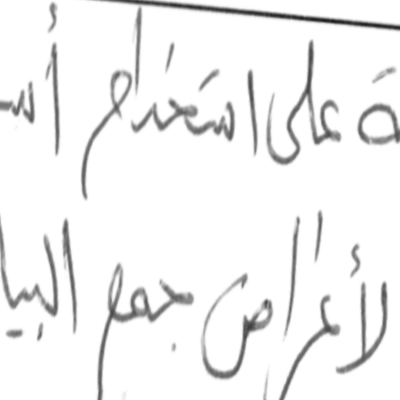 ة على استخدام أسـ
لأغراض جمع البيا